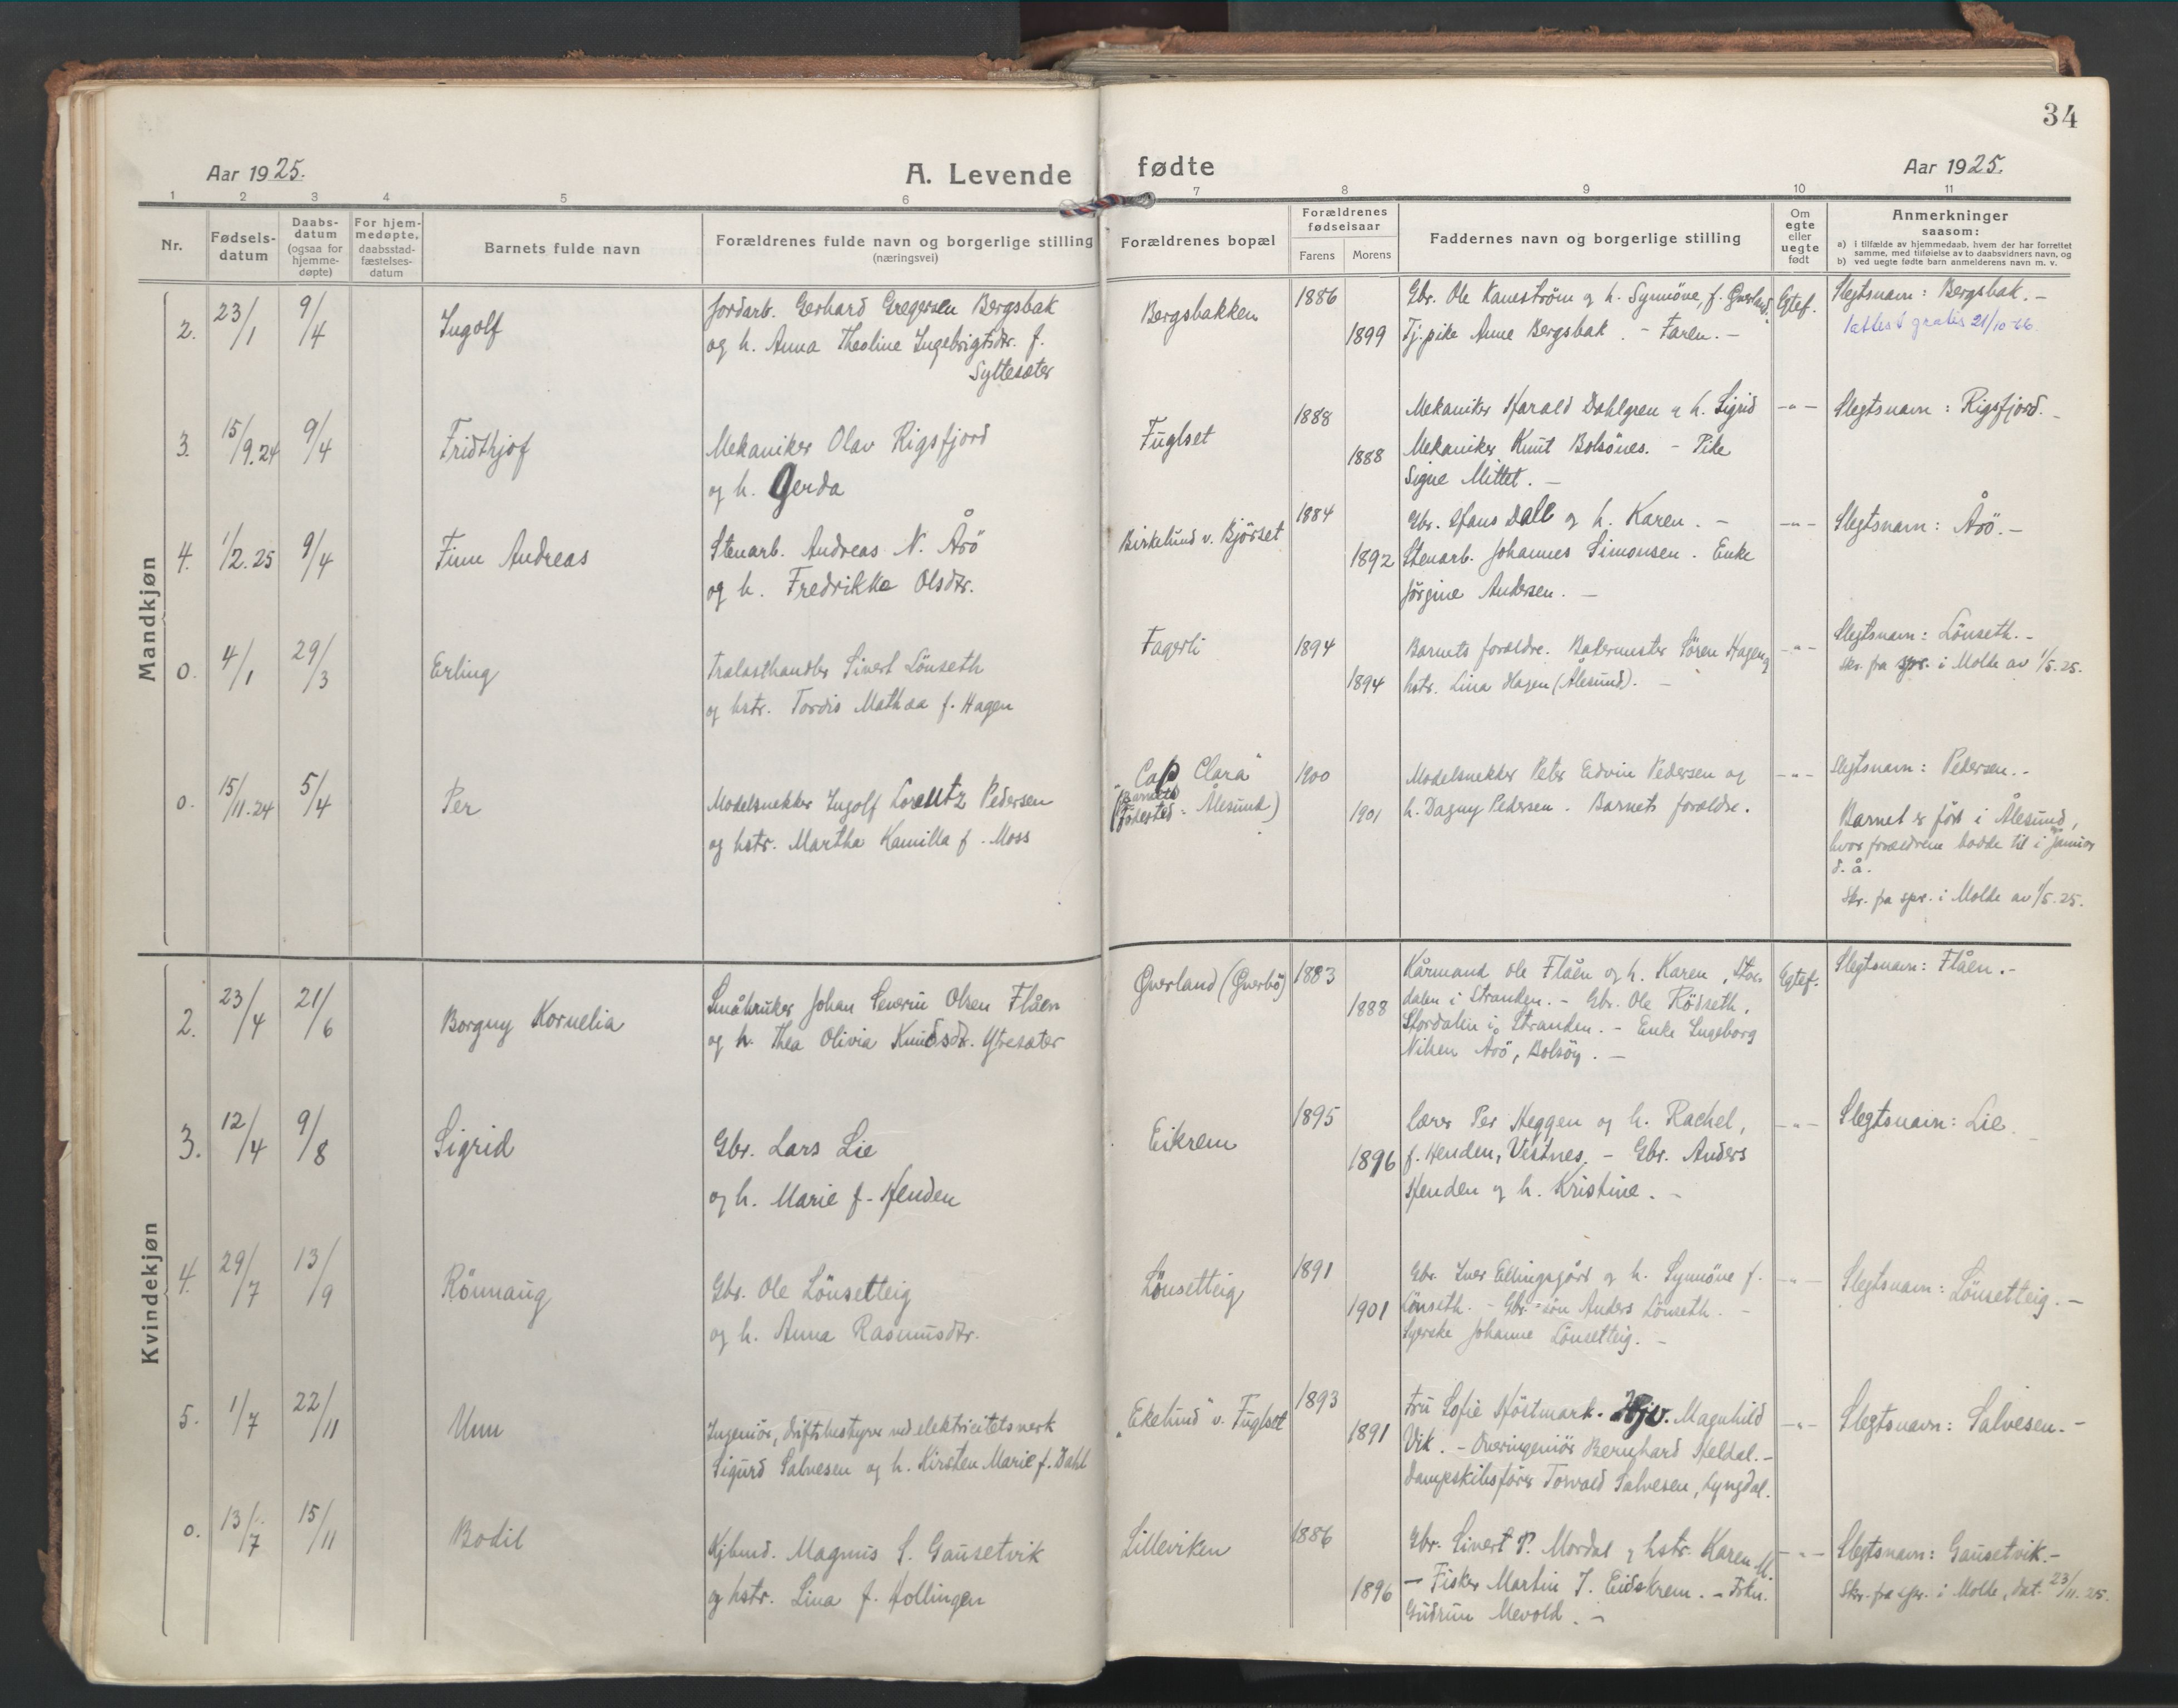 34
Aar 1925.
A. Levende fødte
Aar 1925.
1 2 3 4 5 6 7 8 9 10 11
Nr.
Fødsels-
datum
Daabs-
datum
(ogsaa for
hjemme-
døpte)
For hjem-
medøpte,
daabsstad-
fæstelses-
datum
Barnets fulde navn
Forældrenes fulde navn og borgerlige stilling
(næringsvei)
Forældrenes bopæl
Forældrenes
fødselsaar
Farens Morens
Faddernes navn og borgerlige stilling
Om
egte
eller
uegte
født
Anmerkninger
saasom:
a) i tilfælde av hjemmedaab, hvem der har forrettet
samme, med tilføielse av to daabsvidners navn, og
b) ved uegte fødte barn anmelderens navn m. v.
Mandkjøn
2. 23/1 9/4 Ingolf
Jordarb. Gerhard Gregersen Bergsbak
og h. Anna Theoline Ingebrigtsdtr. f.
Syltesæter
Bergsbakken
1886
1899
Gbr. Ole Kanestrøm og h. Synnöve, f. Gverland.
Tj.pike Anne Bergsbak. - Faren. -
Egtef.
Slegtsnavn: Bergsbak. -
Lattest gratis 21/10-66.
3. 15/9.24 9/4 Fridthjof
Mekaniker Olav Rigsfjord
og h. Gerda
Fuglset
1888
1888
Mekaniker Harald Dahlgren og h. Sigrid
Mekaniker Knut Bolsönes. - Pike
Signe Mittet. -
-"-
Slegtsnavn: Rigsfjord. -
4. 1/2.25 9/4 Finn Andreas
Stenarb. Andreas N. Årö
og h. Fredrikke Olsdtr.
Birkelund v. Bjørset
1884
1892
Gbr. Hans Dall og h. Karen. -
Stenarb. Johannes Simonsen. Enke
Jörgine Andersen. -
-"-
Slegtsnavn: Årö. -
0. 4/1 29/3 Erling
Trælasthandler Sivert Lönseth
og hstr. Tordis Mathea f. Hagen
Fagerli
1894
1894
Barnets forældre. Bakermester Sören Hagen og
hstr. Lina Hagen (Ålesund). -
-"-
Slegtsnavn: Lönseth. -
Skr. fra spr. i Molde av 1/5.25.
0. 15/11.24 5/4 Per
Modelsnekker Ingolf Lorentz Pedersen
og hstr. Martha Kamilla f. Moss
"Cap Clara"
(Barnets
Födested: Ålesund)
1900
1901
Modelsnekker Peter Edvin Pedersen og
h. Dagny Pedersen. Barnets forældre.
-"-
Slegtsnavn: Pedersen. -
Barnet er født i Ålesund,
hvor forældrene bodde til i Januar
d. å.
Skr. fra spr. i Molde av 1/5.25.
Kvindekjøn
2. 23/4 21/6 Borgny Kornelia
Småbruker Johan Severin Olsen Flåen
og h. Thea Olivia Knudsdtr. Ytresæter
Gverland (Gverbö)
1883
1888
Kårmand Ole Flåen og h. Karen, Stor-
dalen i Stranden. - Gbr. Ole Rödseth,
Stordalen i Stranden. - Enke Ingeborg
Nilsen Årö, Bolsöy. -
Egtef.
Slegtsnavn: Flåen. -
3. 12/4 9/8 Sigrid
Gbr. Lars Lie
og h. Marie f. Henden
Eikrem
1895
1896
Lærer Per Heggen og h. Rachel,
f. Henden, Vestnes. - Gbr. Anders
Henden og h. Kristine. -
-"-
Slegtsnavn: Lie -
4. 29/7 13/9 Rönnaug
Gbr. Ole Lönsetteig
og h. Anna Rasmusdtr.
Lönsetteig
1891
1901
Gbr. Iver Ellingsgård og h. Synnöve f.
Lönseth. - Gbr.-sön Anders Lönseth. -
Syerske Johanne Lönsetteig. -
-"-
Slegtsnavn: Lönsetteig. -
5. 1/7 22/11 Unn
Ingeniör, driftsbestyrer ved elektricitetsverk
Sigurd Salvesen og h. Kirsten Marie f. Dahl
"Ekelund" v. Fuglset
1893
1891
Fru Sofie Höstmark. Hjv. Magnhild
Vik. - Overingeniör Bernhard Heldal. -
Dampskibsförer Torvald Salvesen, Lyngdal.
-"-
Slegtsnavn: Salvesen. -
0. 13/7 15/11 Bodil
Kjbmd. Magnus S. Gausetvik
og hstr. Lina f. Hollingen
Lilleviken
1886
1896
Gbr. Sivert P. Mordal og hstr. Karen M.
- Fisker Martin J. Eidskrem. - Frkn.
Gudrun Mevold. -
-"-
Slegtsnavn: Gausetvik. -
Skr. fra spr. i Molde, dat. 23/11.25.